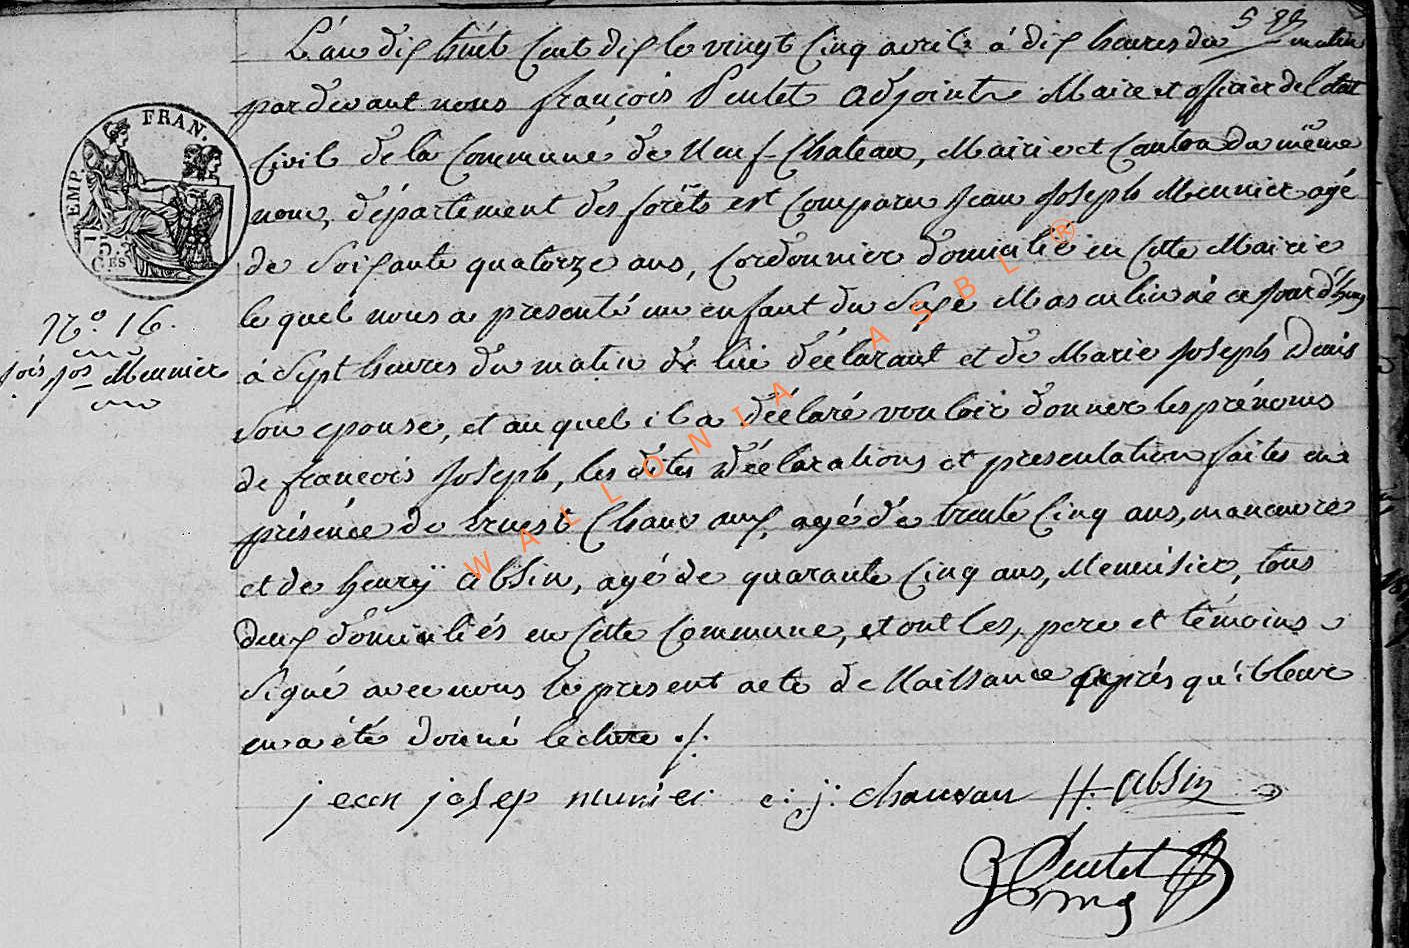 L'an dix huit Cent dix le vingt Cinq avril à dix heures du matin
pardevant nous françois Peulet adjoint Maire et officier del'Etat
Civil de la Commune de Neuf-Chateau, Mairie et Canton du même
nom, département des forêts est Comparu Jean Joseph Meunier agé
de Soixante quatorze ans, Cordonnier domicilié en Cette Mairie
FRAN.
EMP.
le quel nous a presenté un enfant du Sexe Masculin né ce jour d'huy
N.o 16.
fois Jos Meunier
à Sept heures du matin de lui déclarant et de Marie Joseph Denis
Son epouse, et au quel il a déclaré vouloir donner les prénoms
de françois Joseph, les dites déclarations et presentation faites en
présence de Ernest agé de trente Cinq ans, manœuvre
et de henrÿ absin, agé de quarante Cinq ans, Menuisier, tous
deux domiciliés en Cette Commune, et ont les, pere et témoins
Signé avec nous le present acte de Naissance après qu'il leur
en a été donné lecture ./.
jean josep munier c: j: chauvau H. absin
Peulet
WALLONIA ASBL ®